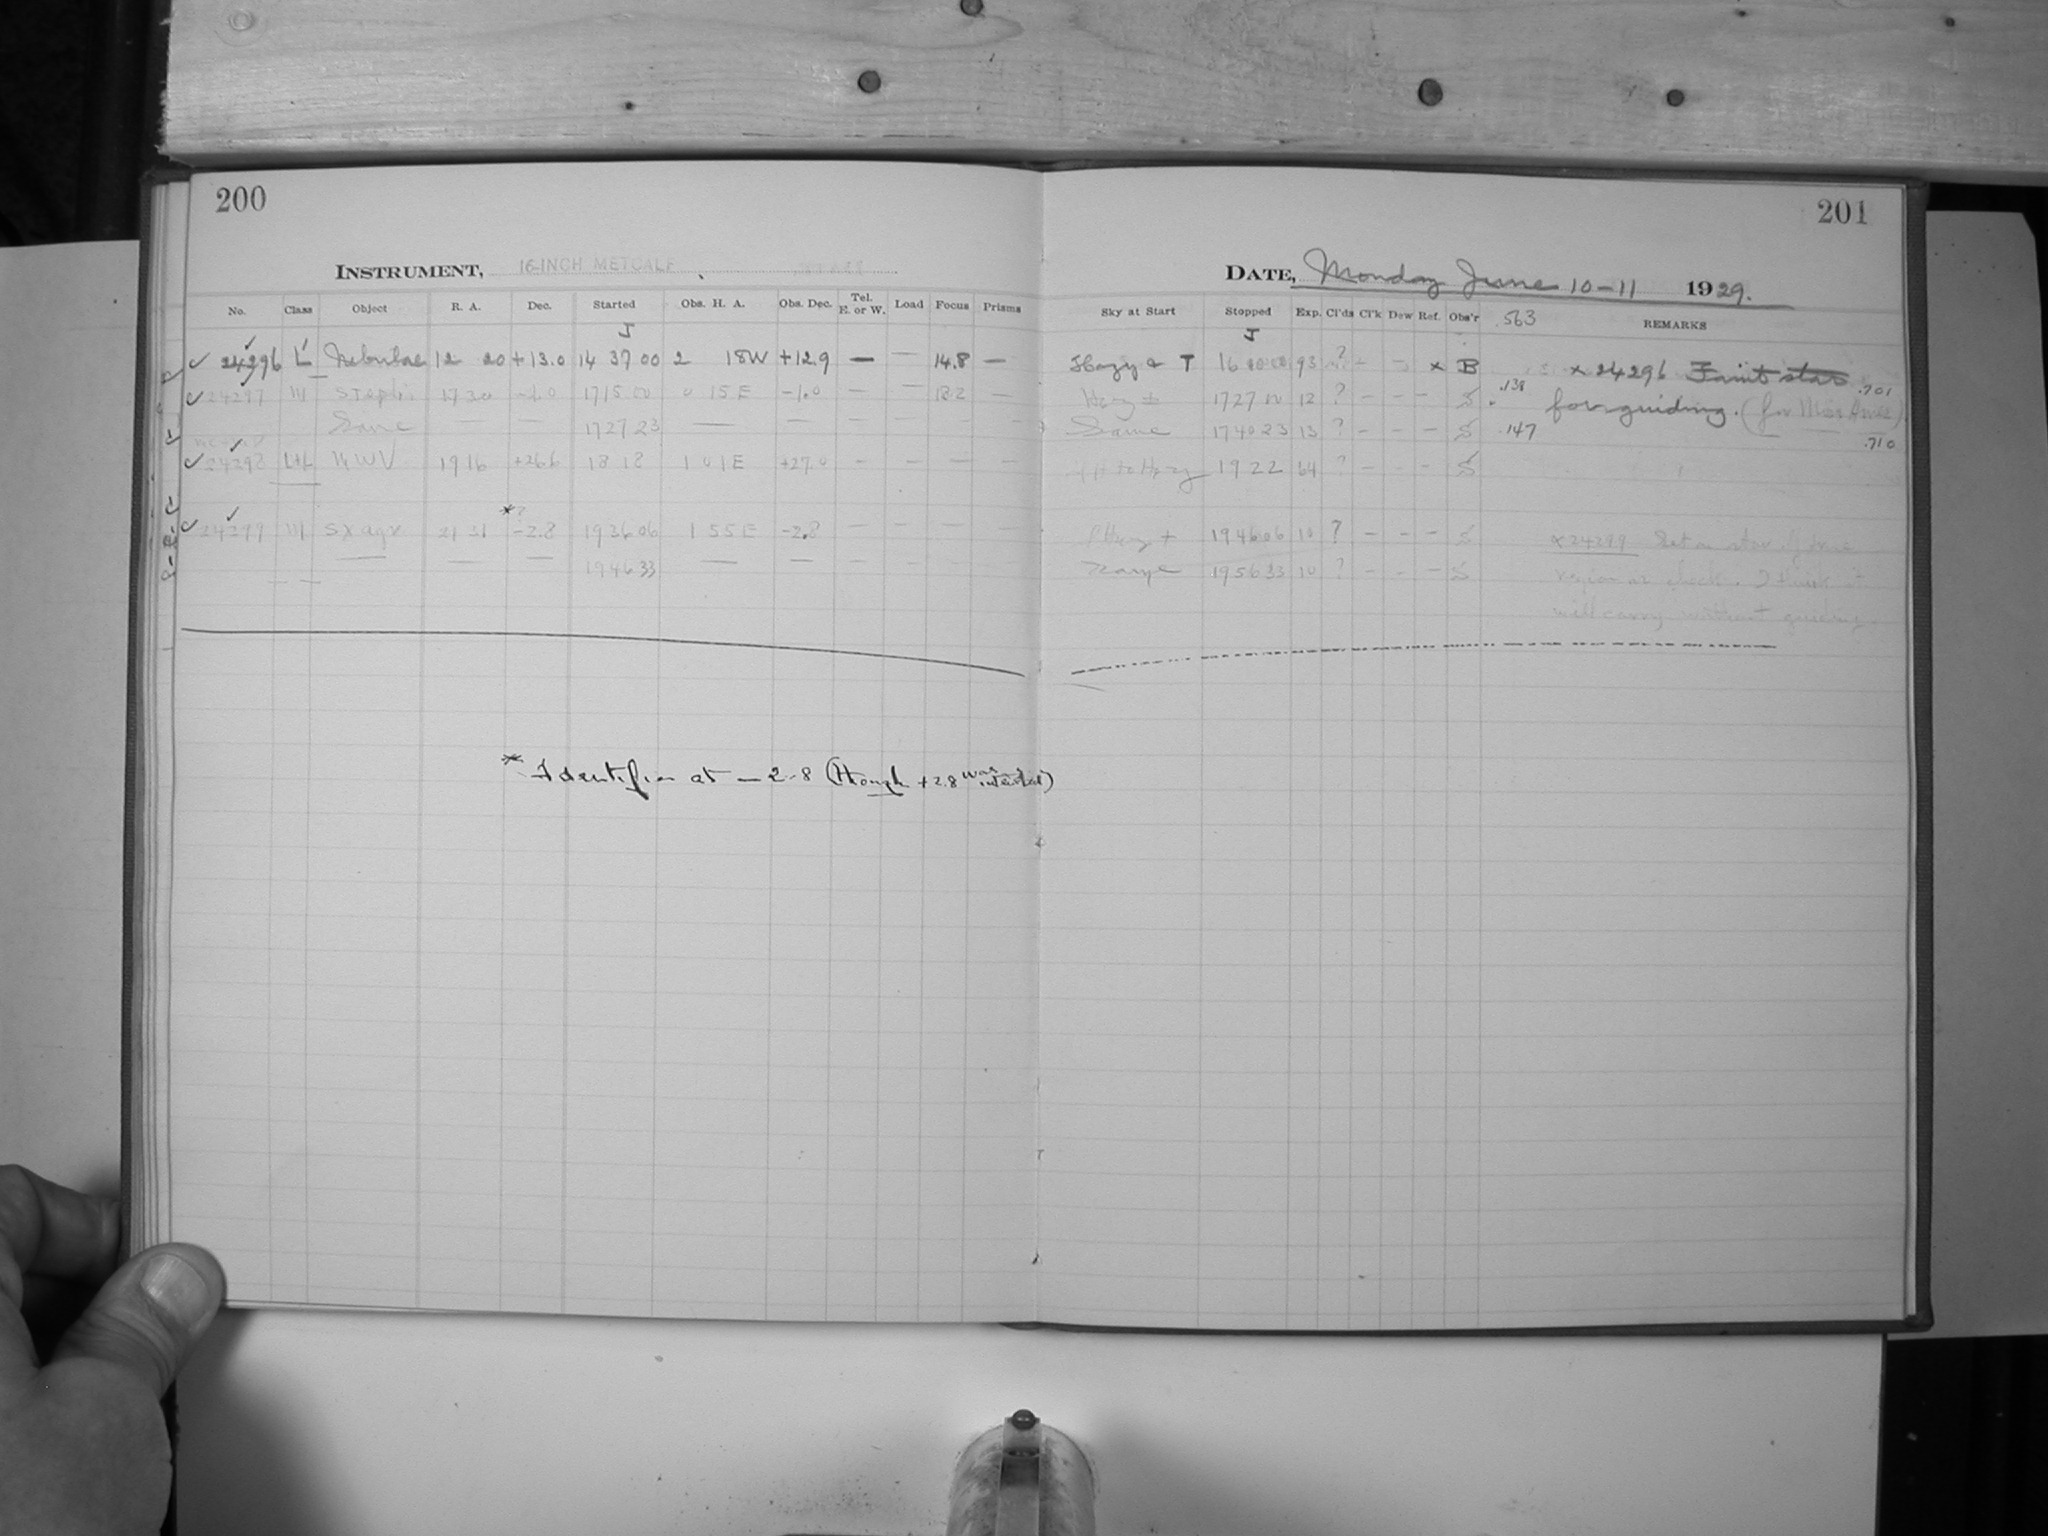 200
201
INSTRUMENT, 16-INCH METCALF
DATE, Monday June 10-11 1929.
No. Class Object R. A. Dec. Started Obs. H. A. Obs. Dec. Tel. E. or W. Load Focus Prisms
Sky at Start Stopped Exp. Cl'ds Cl'k Dew Ref. Obs'r .563 REMARKS
J J
24296 L Nebulae 12 20 +13.0 14 37 00 2 18W +12.9 — — 14.8 —
Hazy T 16 10 00 93 ? x B x 24296 Faint star
24297 III 17 30 -1.0 17 15 10 0 15E -1.0 — — —
Hazy 17 27 10 12 ? - - - S .138 for guiding. (for Miss .701
Same — — 17 27 23 — — — —
Same 17 40 23 13 ? - - - S .147 .710
24298 L+L 19 16 +26.6 18 18 1 01E +27.0 — — — —
Hazy 19 22 64 ? - - - S
24299 III SX Aqr 21 31 *? -2.8 19 36 06 1 55E -2.8 — — — —
19 46 06 10 ? - - - S x 24299 Set on star
— — — 19 46 33 — — — — — —
19 56 33 10 ? - - - S region as check. I think it
will carry without guiding
* Identifier at -2.8 (though +2.8 was intended)